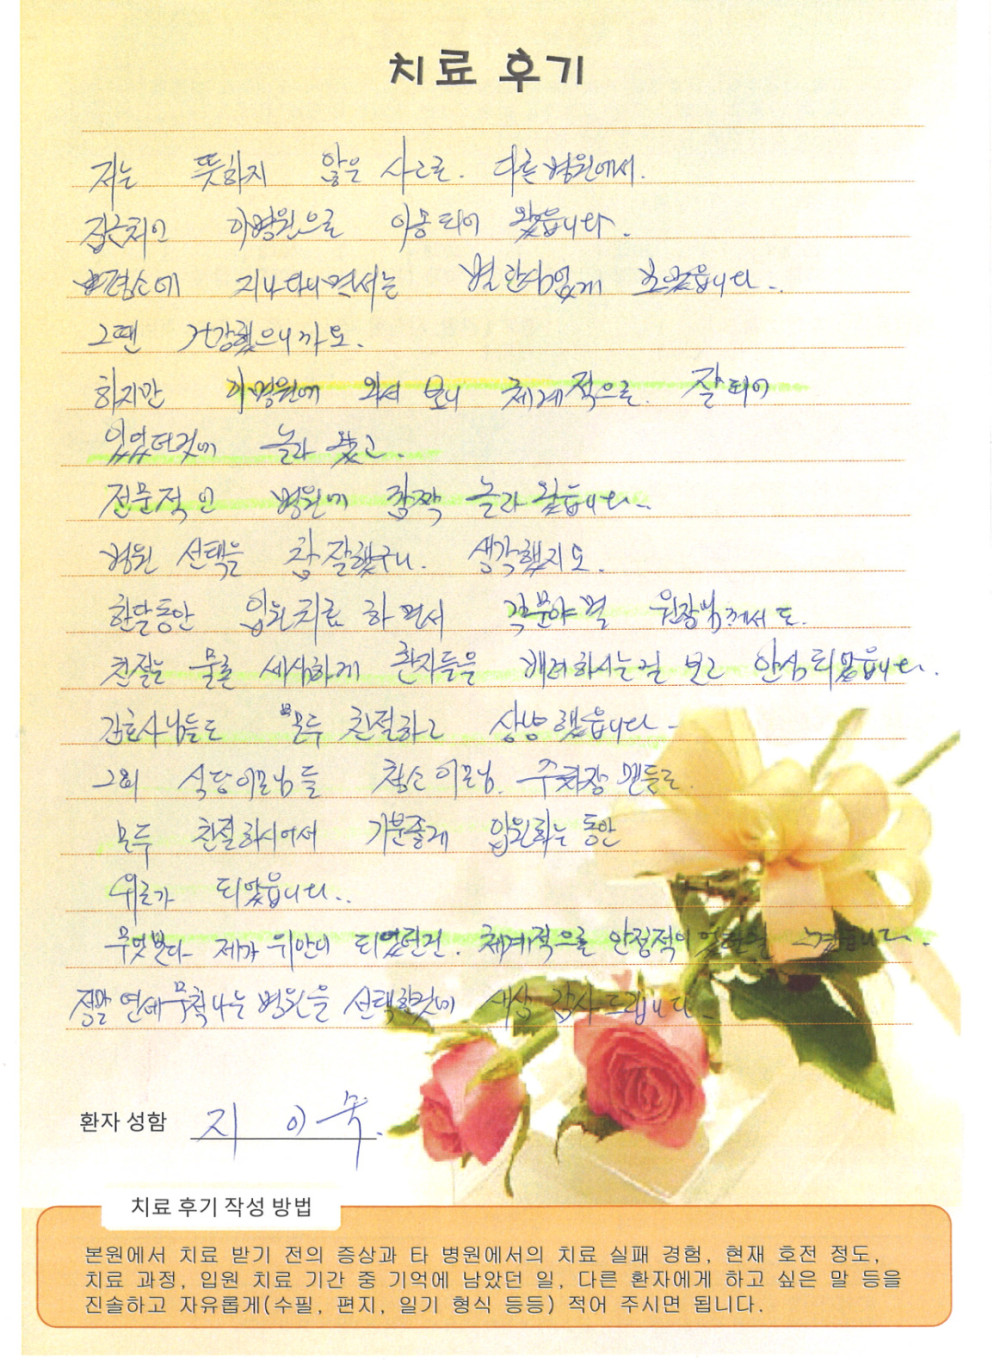 치료 후기
저는 뜻하지 않은 사고로. 다른 병원에서.
집근처인 이병원으로 이송되어 왔습니다.
평소에 지나다니면서는 별관심없게 보았습니다..
그땐 건강했으니까요.
하지만 이병원에 와서 보니 체계적으로. 잘되어
있었던것에 놀라 웠고.
전문적인 병원에 깜짝 놀라 웠습니다..
병원 선택을 참 잘했구나. 생각했지요.
한달동안 입원치료 하면서 각분야별 원장님께서도.
친절는 물론 세심하게 환자들을 배려하시는걸 보고 안심되었습니다.
간호사님들도 모두 친절하고 상냥했습니다-
그외 식당이모님들 청소이모님. 주차장 맨들도.
모두 친절하시어서 기분좋게 입원하는 동안
위로가 되었습니다..
무엇보다 제가 위안이 되었던건. 체계적으로 안정적이
정말 연세무척나는 병원을 선택한것에 새삼 감사드립니다.
환자 성함 지 이숙.
치료 후기 작성 방법
본원에서 치료 받기 전의 증상과 타 병원에서의 치료 실패 경험, 현재 호전 정도,
치료 과정, 입원 치료 기간 중 기억에 남았던 일, 다른 환자에게 하고 싶은 말 등을
진솔하고 자유롭게(수필, 편지, 일기 형식 등등) 적어 주시면 됩니다.